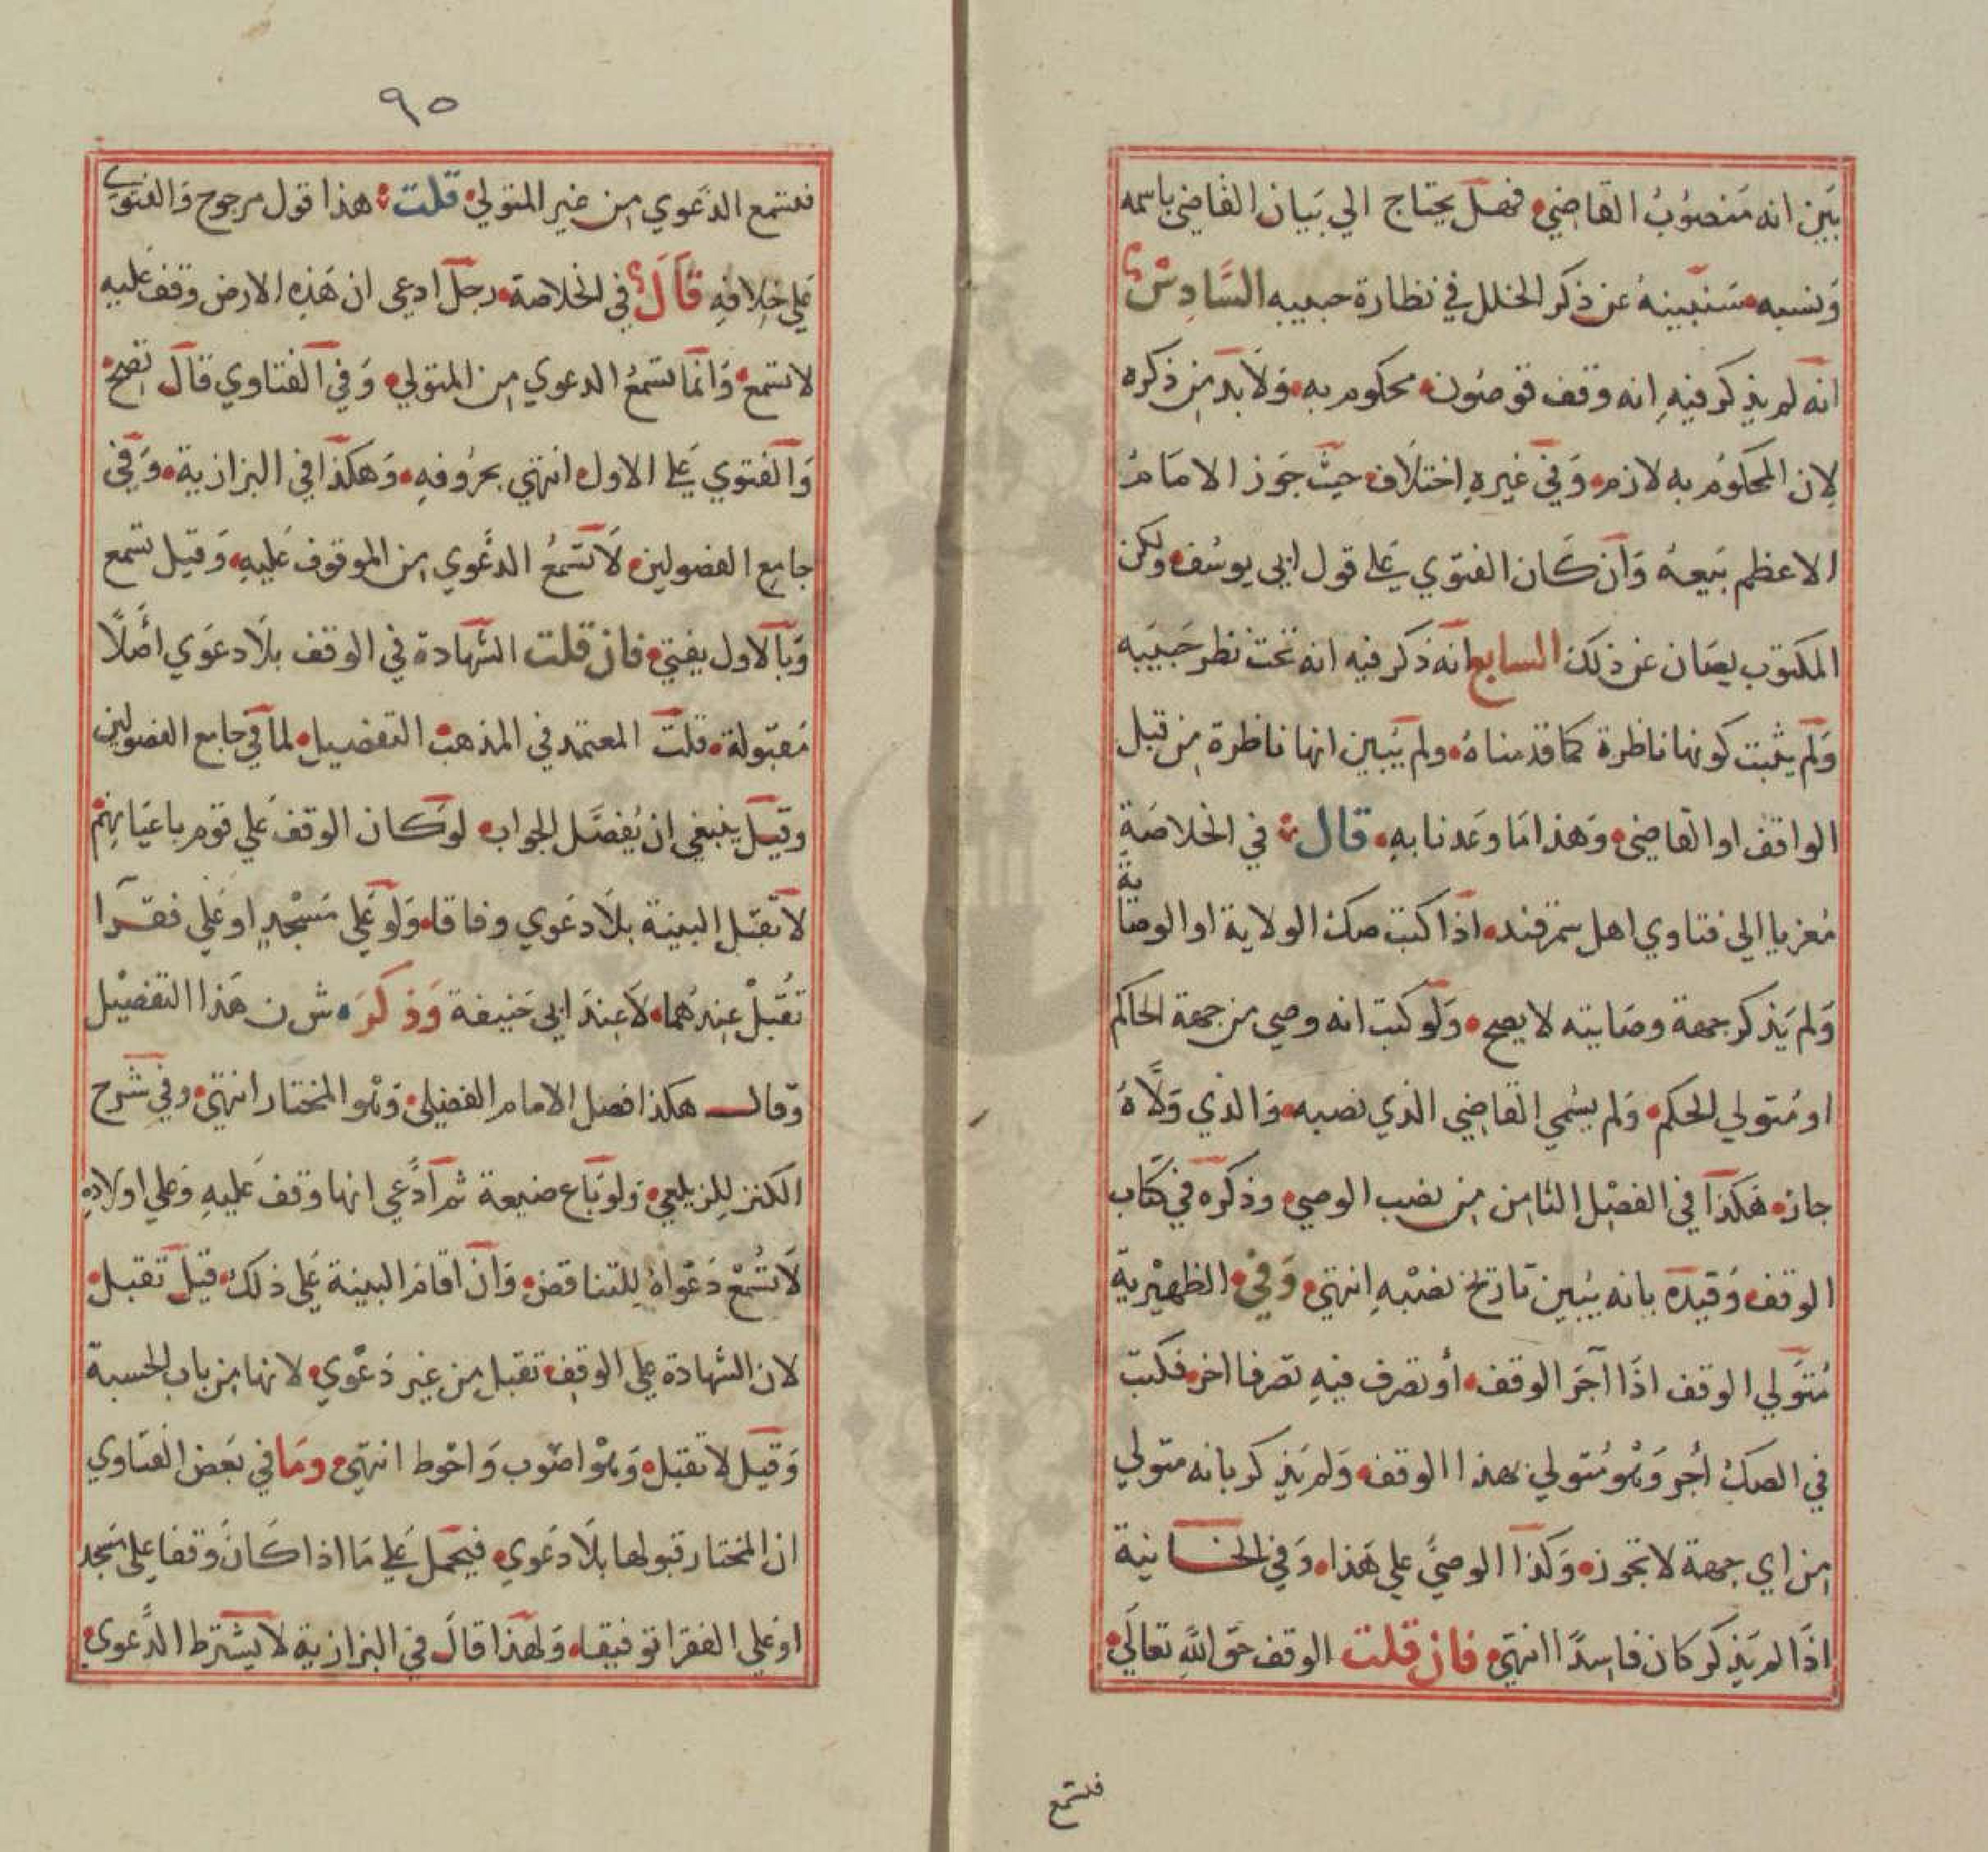 بين انه منصوب القاضي فهل يحتاج الي بيان القاضي باسمه
ونسبه سنبينه عن ذكر الخلل في نظارة حبيبه السادس
انه لم يذكر فيه انه وقف قوصون محكوم به ولا بد من ذكره
لان المحكوم به لازم وفي غيره اختلاف حيث جوز الامام
الاعظم بيعه وان كان الفتوي علي قول ابي يوسف ولكن
المكتوب يصان عن ذلك السابع انه ذكر فيه انه تحت نظر حبيبه
ولم يثبت كونها ناظرة كما قدمناه ولم يبين انها ناظرة من قبل
الواقف او القاضي وهذا ما وعدنا به قال في الخلاصة
معزيا الي فتاوي اهل سمرقند اذا كتب صك الولاية او الوصاية
ولم يذكر جهة وصايته لا يصح ولو كتب انه وصي من جهة الحاكم
او متولي الحكم ولم يسمي القاضي الذي نصبه والذي ولاه
جاز هكذا في الفصل الثامن من نصب الوصي وذكره في كتاب
الوقف وقيده بانه يبين تاريخ نصبه انتهي وفي الظهيرية
متولي الوقف اذا آجر الوقف أو تصرف فيه تصرفا اخر فكتب
في الصك أجر وهو متولي لهذا الوقف ولم يذكر بانه متولي
من اي جهة لا تجوز وكذا الوصي علي هذا وفي الخانية
اذا لم يذكر كان فاسدا انتهي فان قلت الوقف حق الله تعالي
فلتسمع
٩٥
فلتسمع الدعوي من غير المتولي قلت هذا قول مرجوح والفتوي
علي خلافه قال في الخلاصة رجل ادعي ان هذه الارض وقف عليه
لا تسمع وانما تسمع الدعوي من المتولي وفي الفتاوي قال تصح
والفتوي علي الاول انتهي بحروفه وهكذا في البزازية وفي
جامع الفصولين لا تسمع الدعوي من الموقوف عليه وقيل تسمع
وبالاول يفتي فان قلت الشهادة في الوقف بلا دعوي أصلا
مقبولة قلت المعتمد في المذهب التفصيل لما في جامع الفصولين
وقيل ينبغي ان يفصل الجواب لو كان الوقف علي قوم باعيانهم
لا تقبل البينة بلا دعوي وفاقا ولو علي مسجد او علي فقرا
تقبل عندهما لا عند ابي حنيفة وذكر ش ن هذا التفصيل
وقال هكذا فصل الامام الفضيلي وهو المختار انتهي وفي شرح
الكنز للزيلعي ولو باع ضيعة ثم ادعي انها وقف عليه وعلي اولاده
لا تسمع دعواه للتناقض وان اقام البينة علي ذلك قيل تقبل
لان الشهادة علي الوقف تقبل من غير دعوي لانها من باب الحسبة
وقيل لا تقبل وهو اصوب واحوط انتهي وما في بعض الفتاوي
ان المختار قبولها بلا دعوي فيحمل علي ما اذا كان وقفا علي مسجد
او علي الفقرا توفيقا ولهذا قال في البزازية لا يشترط الدعوي